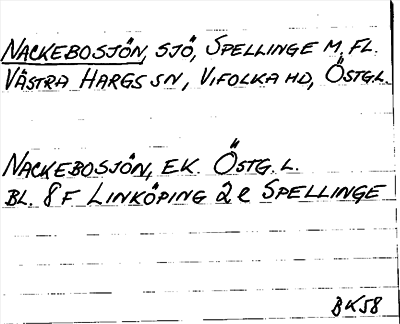 NACKEBOSJÖN, SJÖ, SPELLINGE M. FL.
VÄSTRA HARGS SN, VIFOLKA HD, ÖSTG.L.
NACKEBOSJÖN, EK. ÖSTG. L.
BL. 8F LINKÖPING 2e SPELLINGE
BK58